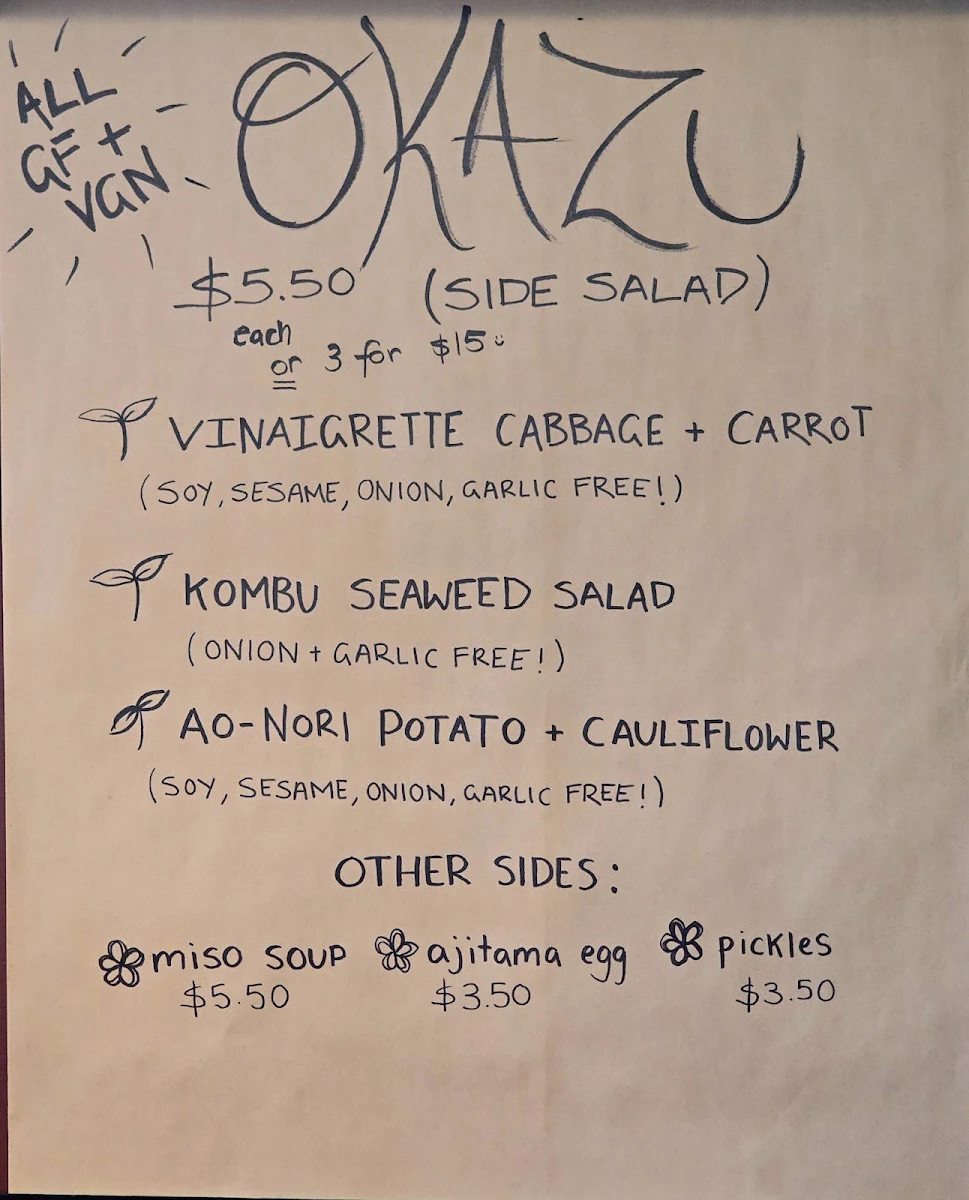 ALL
GF +
VGN
OKAZU
$5.50 (SIDE SALAD)
each
or 3 for $15
VINAIGRETTE CABBAGE + CARROT
(SOY, SESAME, ONION, GARLIC FREE!)
KOMBU SEAWEED SALAD
(ONION + GARLIC FREE!)
AO-NORI POTATO + CAULIFLOWER
(SOY, SESAME, ONION, GARLIC FREE!)
OTHER SIDES:
miso soup ajitama egg pickles
$5.50 $3.50 $3.50